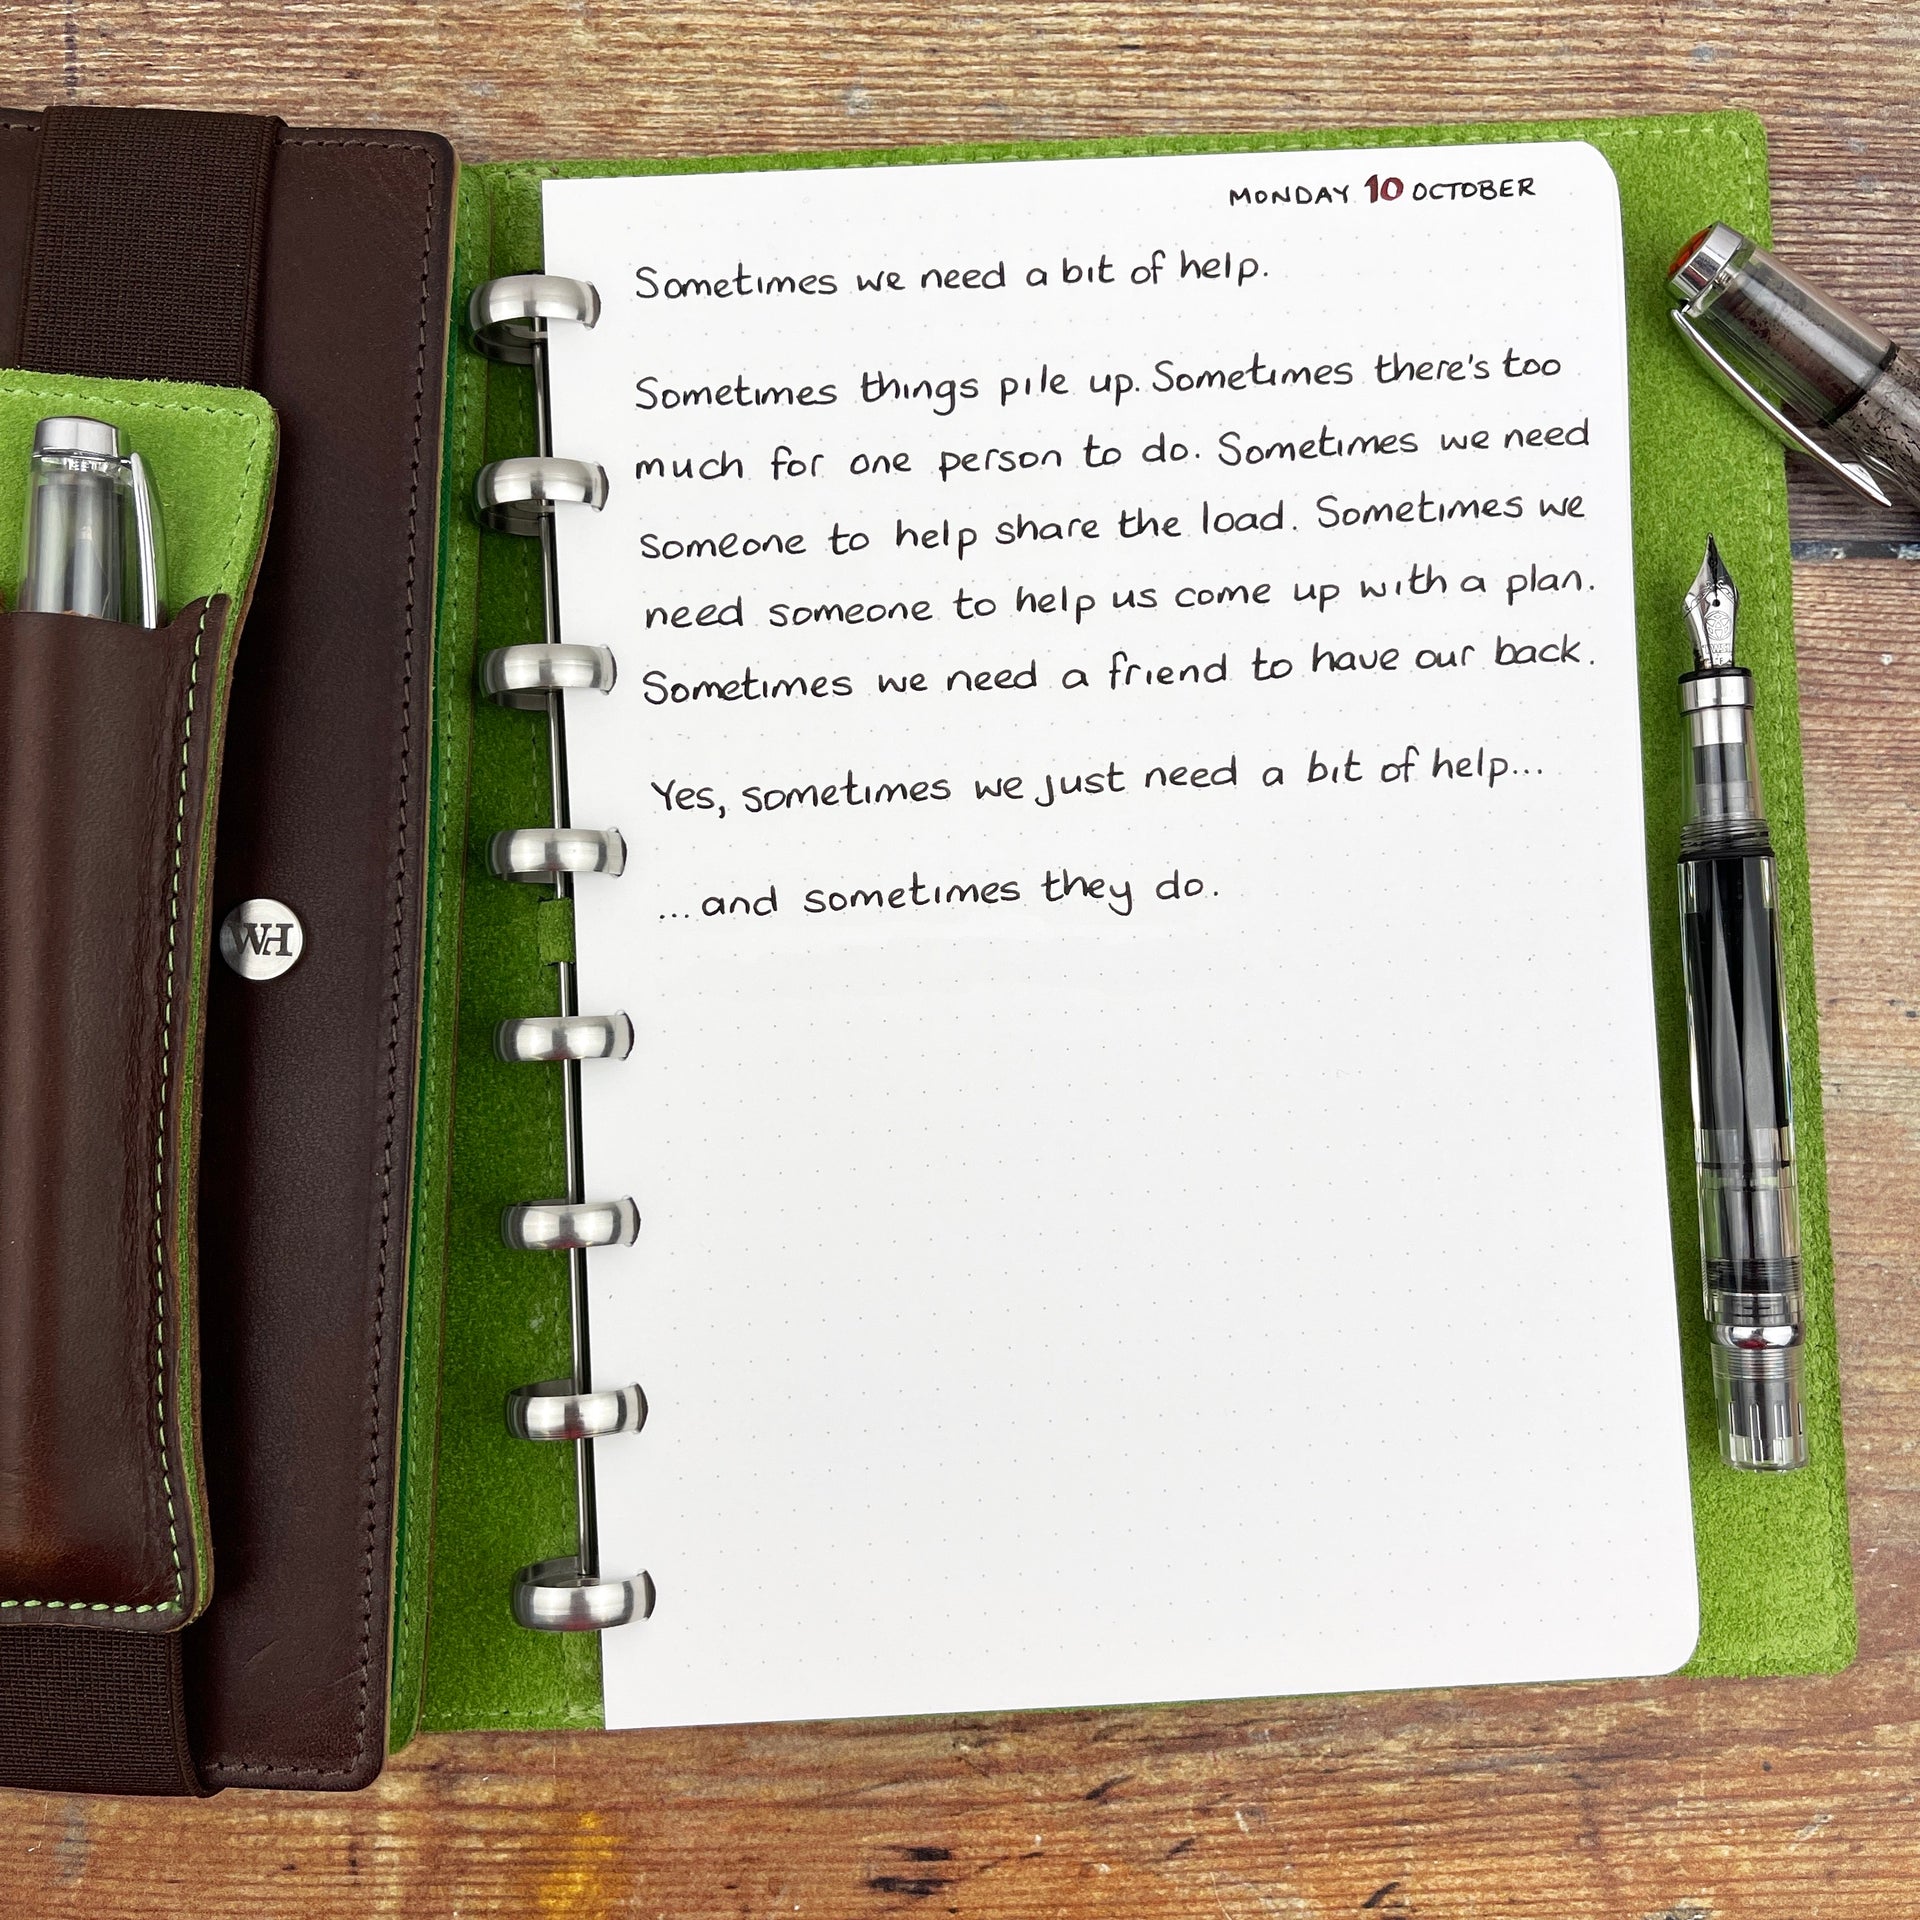 MONDAY 10 OCTOBER
Sometimes we need a bit of help.
Sometimes things pile up. Sometimes there's too
much for one person to do. Sometimes we need
someone to help share the load. Sometimes we
need someone to help us come up with a plan.
Sometimes we need a friend to have our back.
Yes, sometimes we just need a bit of help...
...and sometimes they do.
WH